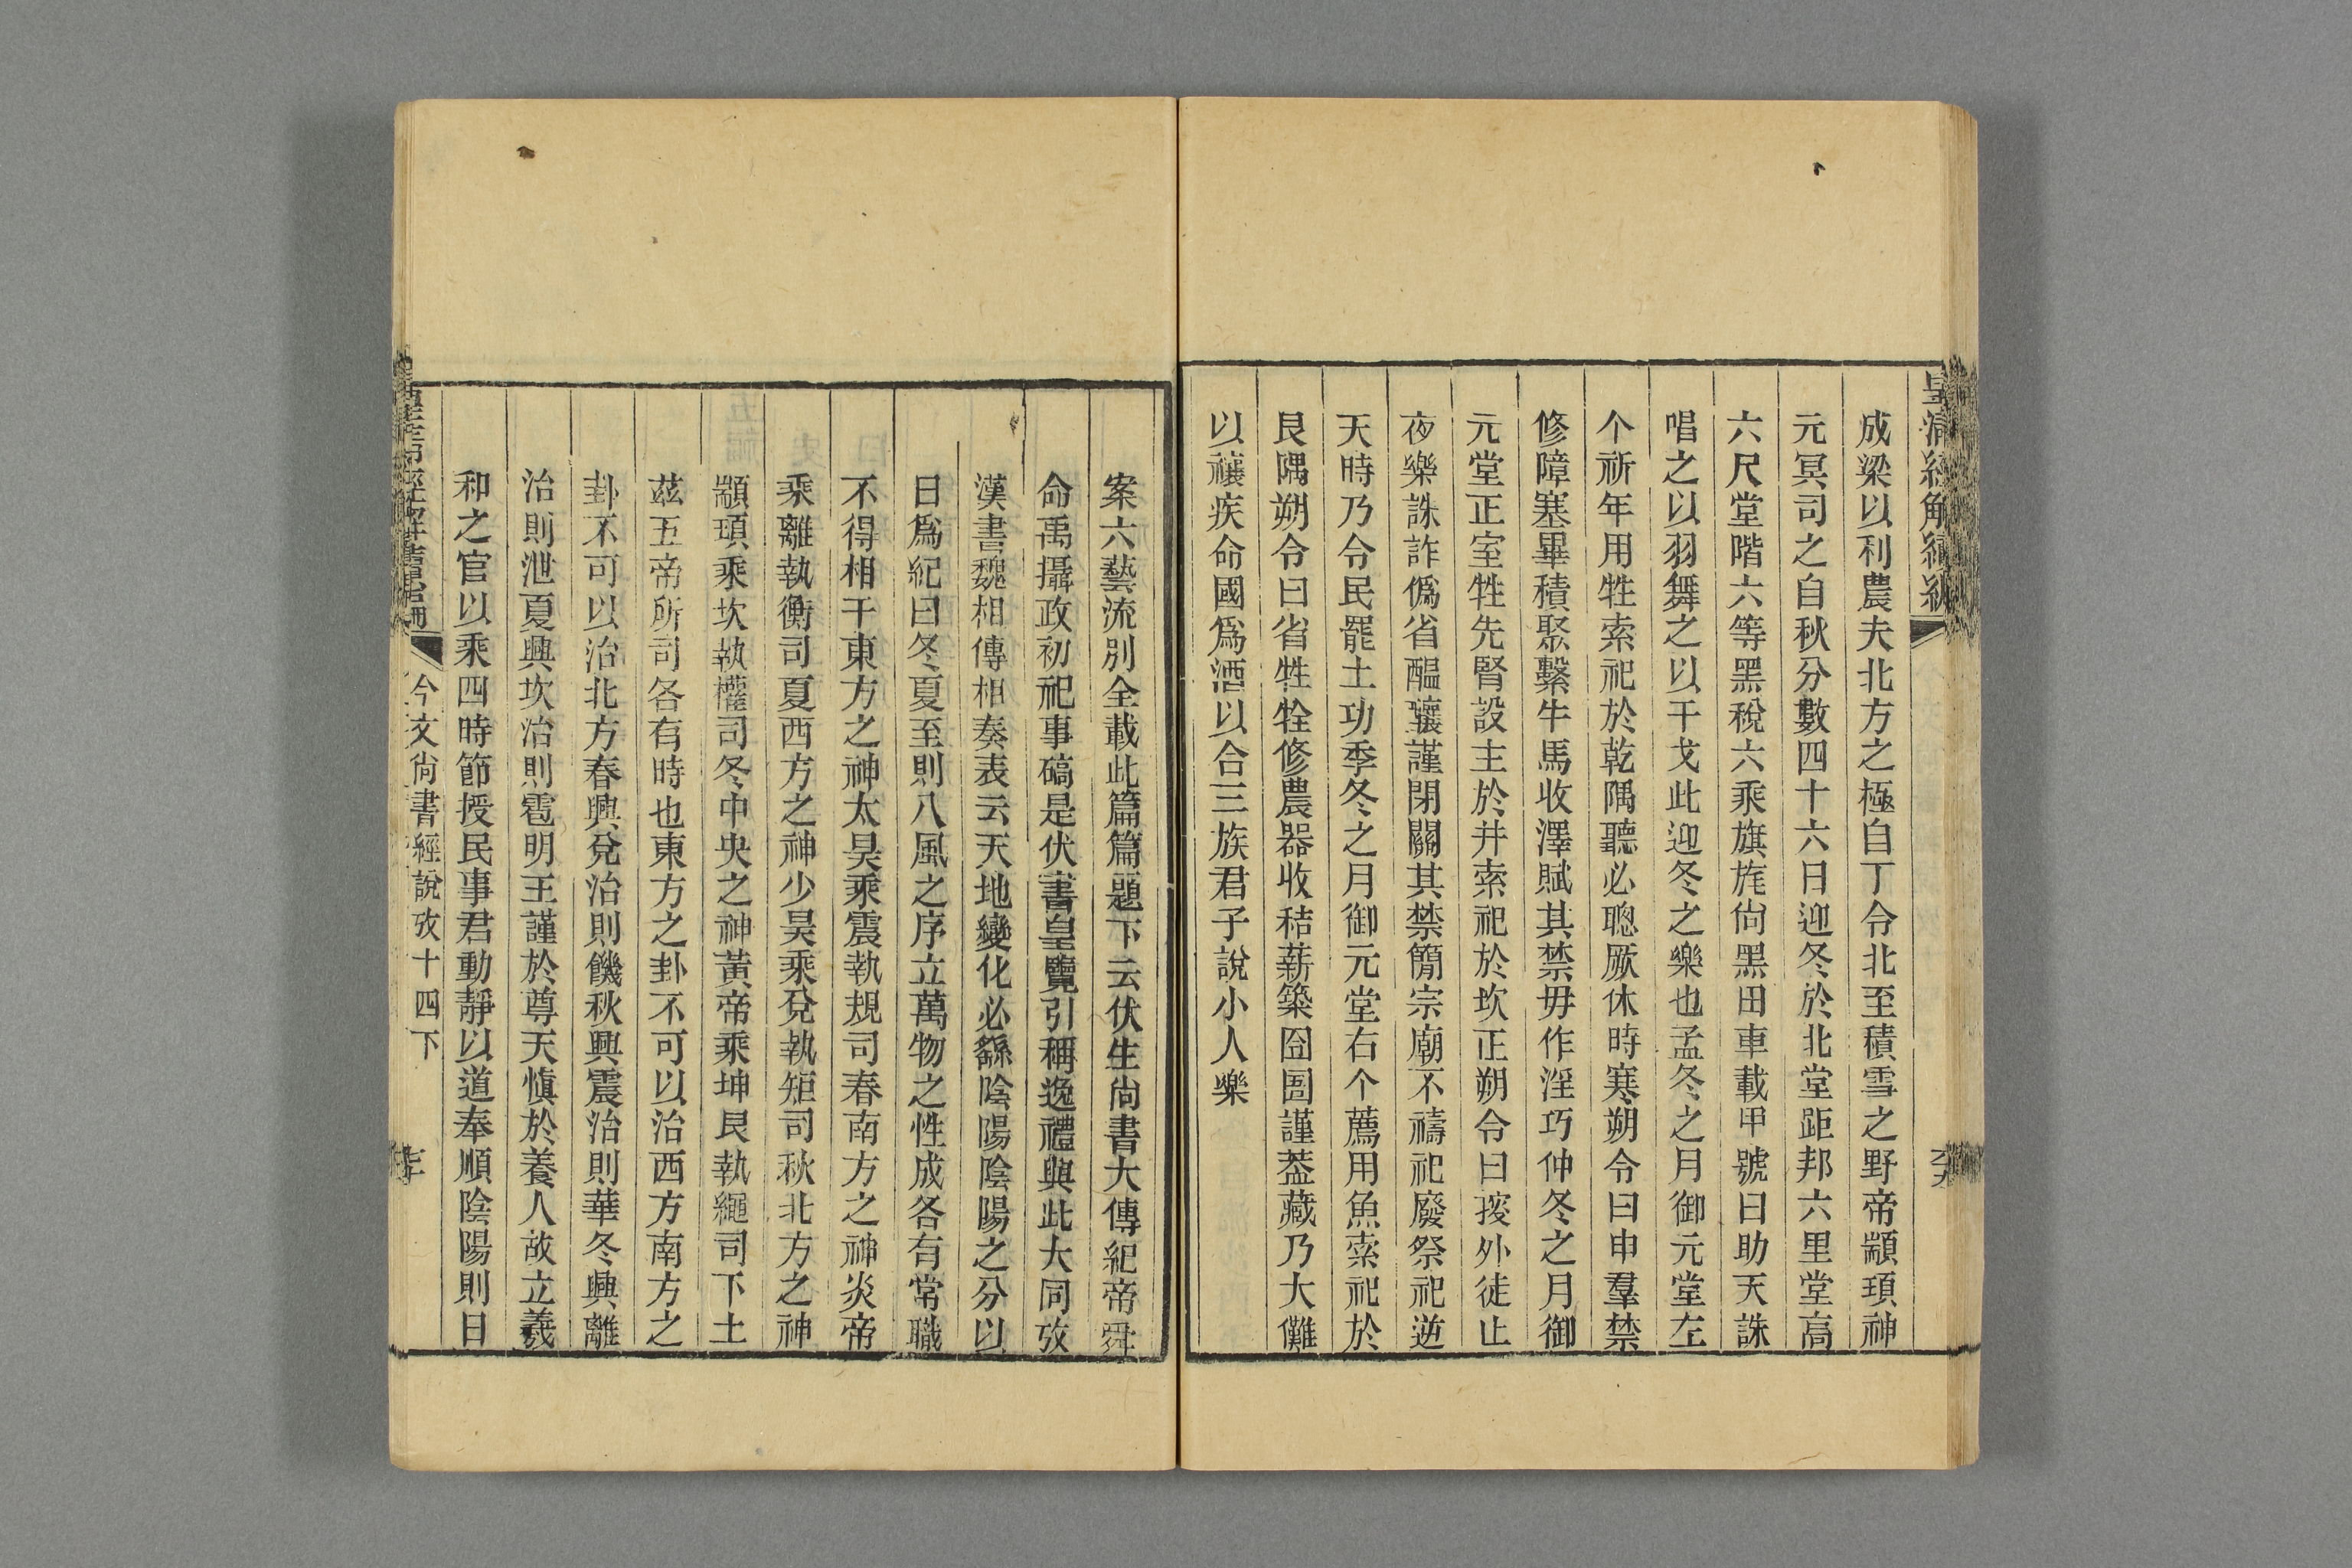 皇清經解續編
成梁以利農夫北方之極自丁令北至積雪之野帝顓頊神
元冥司之自秋分數四十六日迎冬於北堂距邦六里堂高
六尺堂階六等黑稅六乘旗旄尙黑田車載甲號曰助天誅
唱之以羽舞之以干戈此迎冬之樂也孟冬之月御元堂左
个祈年用牲索祀於乾隅聽必聰厥休時寒朔令曰申羣禁
修障塞畢積聚繫牛馬收澤賦其禁毋作淫巧仲冬之月御
元堂正室牲先腎設主於井索祀於坎正朔令曰搜外徒止
夜樂誅詐僞省醞釀謹閉關其禁簡宗廟不禱祀廢祭祀逆
天時乃令民罷土功季冬之月御元堂右个薦用魚索祀於
艮隅朔令曰省牲牷修農器收秸薪築囹圄謹葢藏乃大儺
以禳疾命國爲酒以合三族君子說小人樂
案六藝流別全載此篇篇題下云伏生尙書大傳紀帝舜
命禹攝政初祀事碻是伏書皇覽引稱逸禮與此大同攷
漢書魏相傳相奏表云天地變化必繇陰陽陰陽之分以
日爲紀曰冬夏至則八風之序立萬物之性成各有常職
不得相干東方之神太昊乘震執規司春南方之神炎帝
乘離執衡司夏西方之神少昊乘兌執矩司秋北方之神
顓頊乘坎執權司冬中央之神黃帝乘坤艮執繩司下土
茲五帝所司各有時也東方之卦不可以治西方南方之
卦不可以治北方春興兌治則饑秋興震治則華冬興離
治則泄夏興坎治則雹明王謹於尊天愼於養人故立羲
和之官以乘四時節授民事君動靜以道奉順陰陽則日
今文尙書經說攷十四下